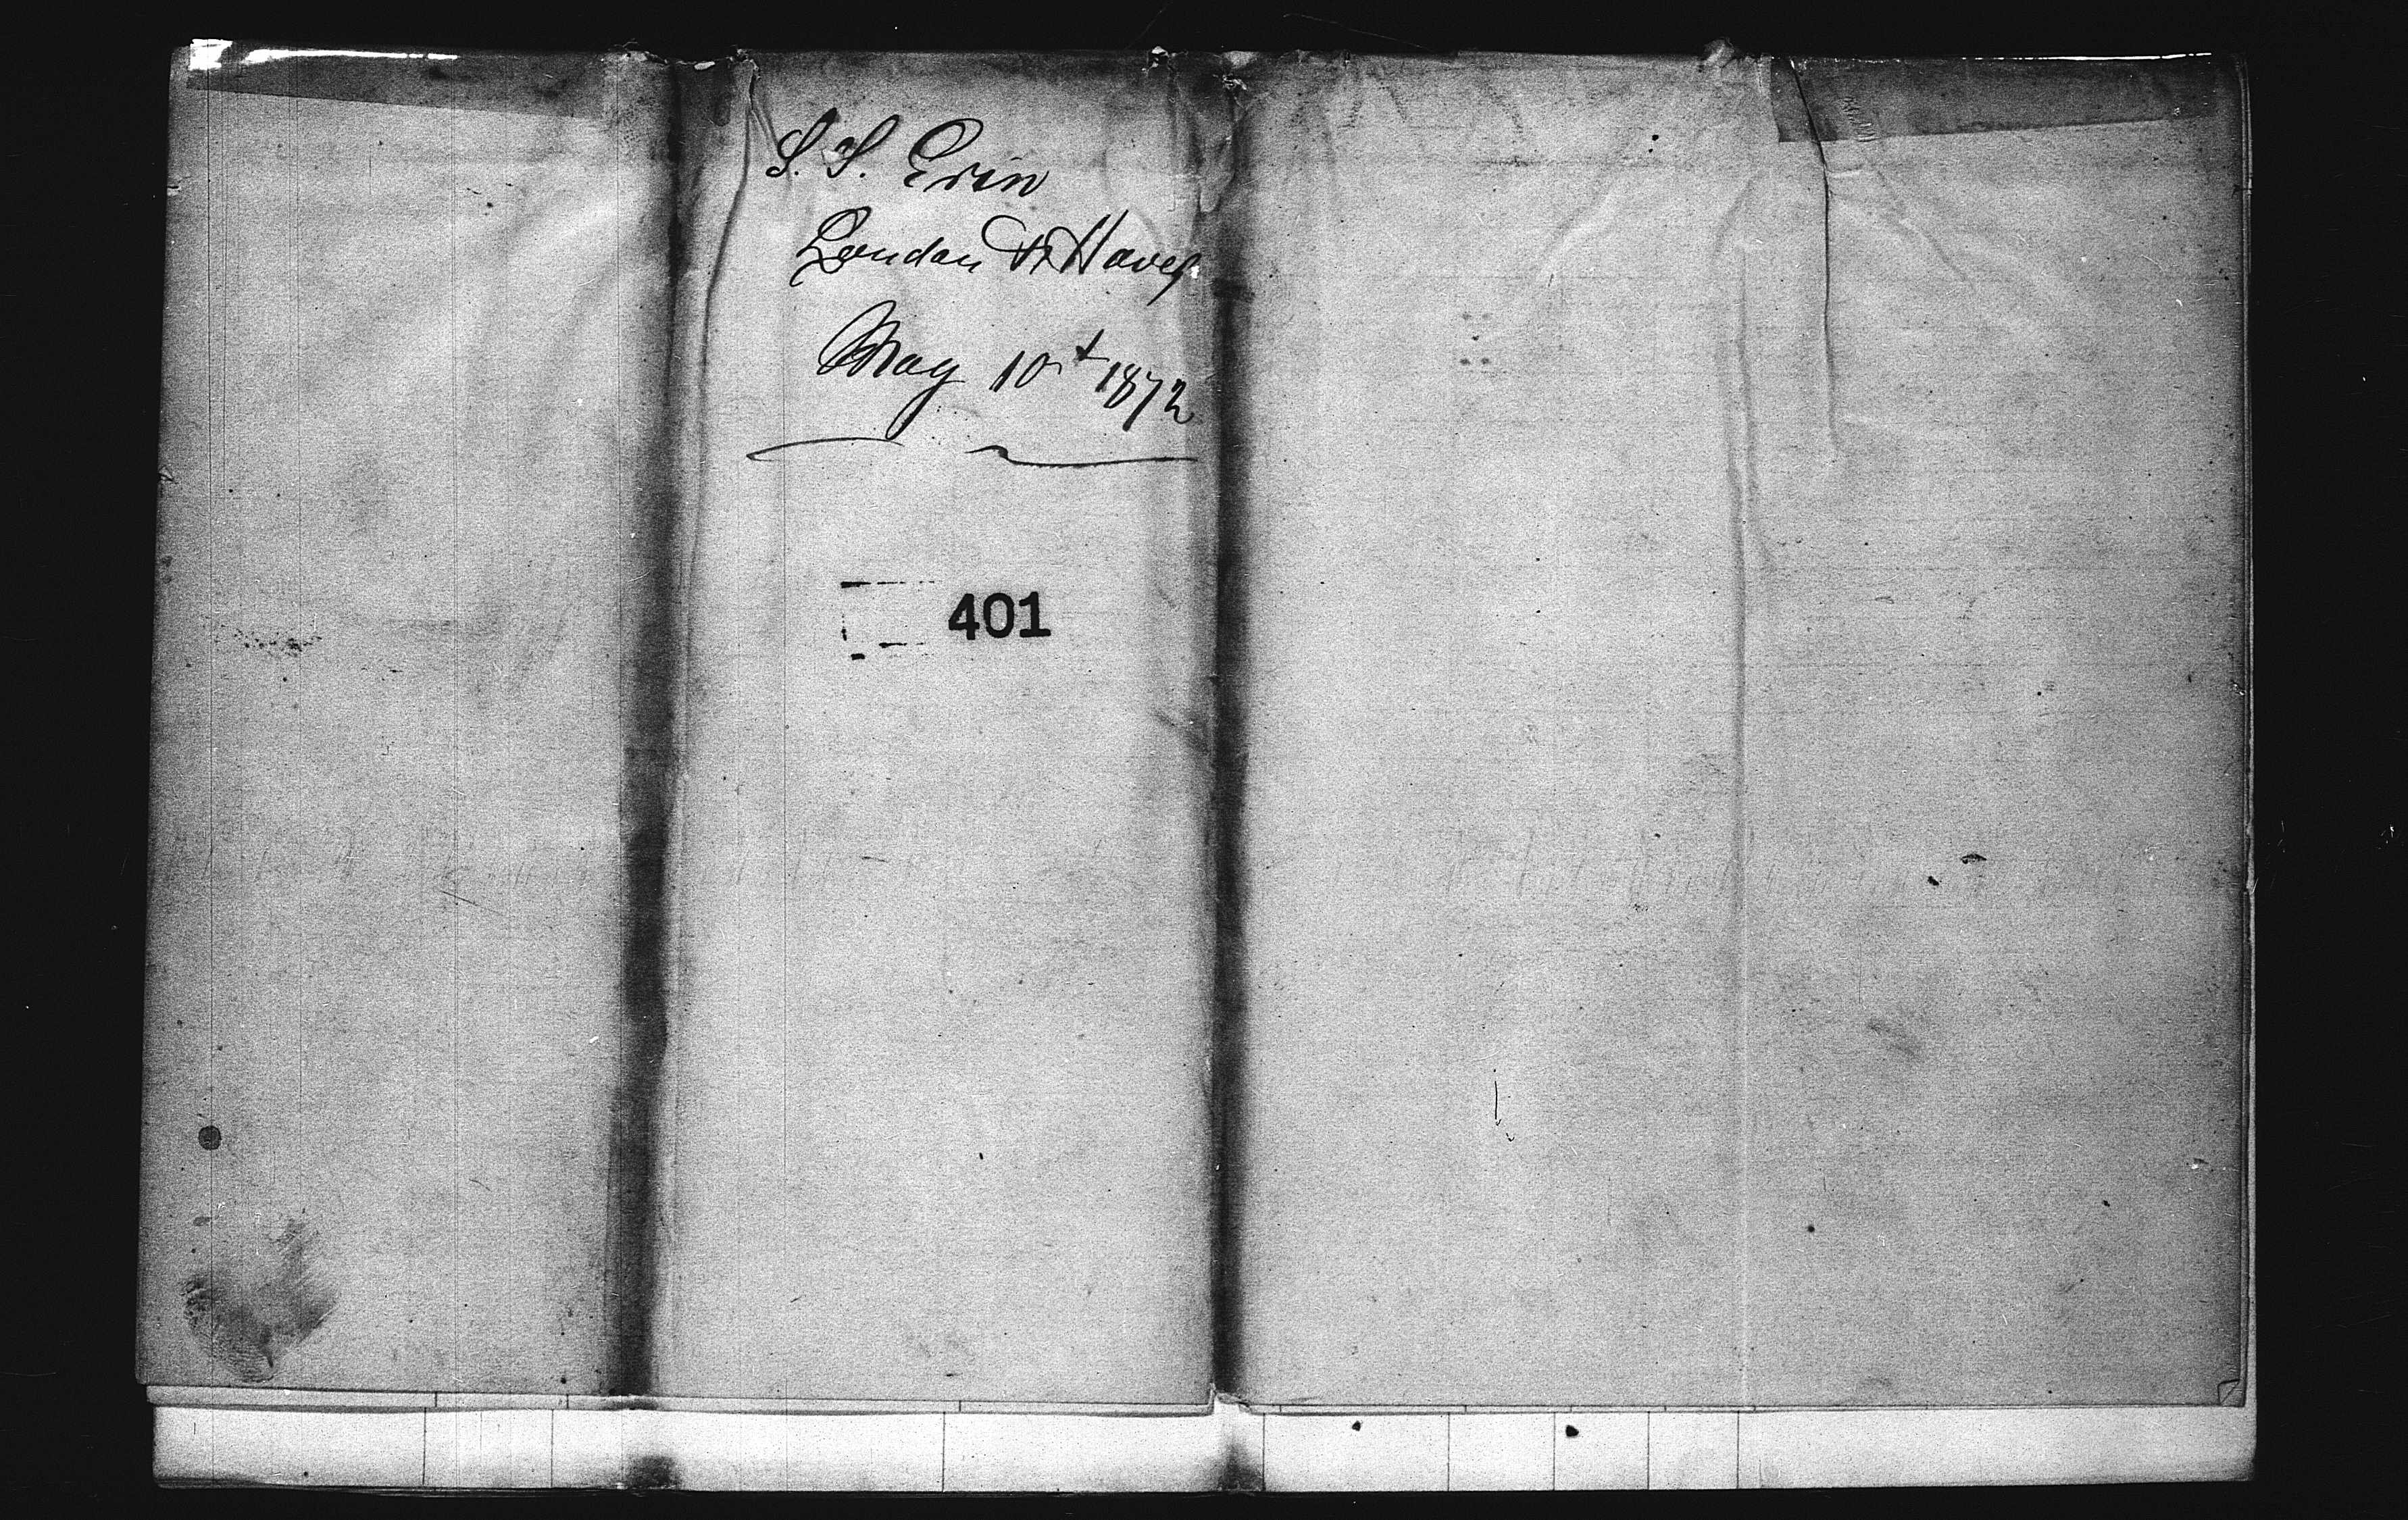 S. S. Erin
London & Havre
May 10t 1872
401